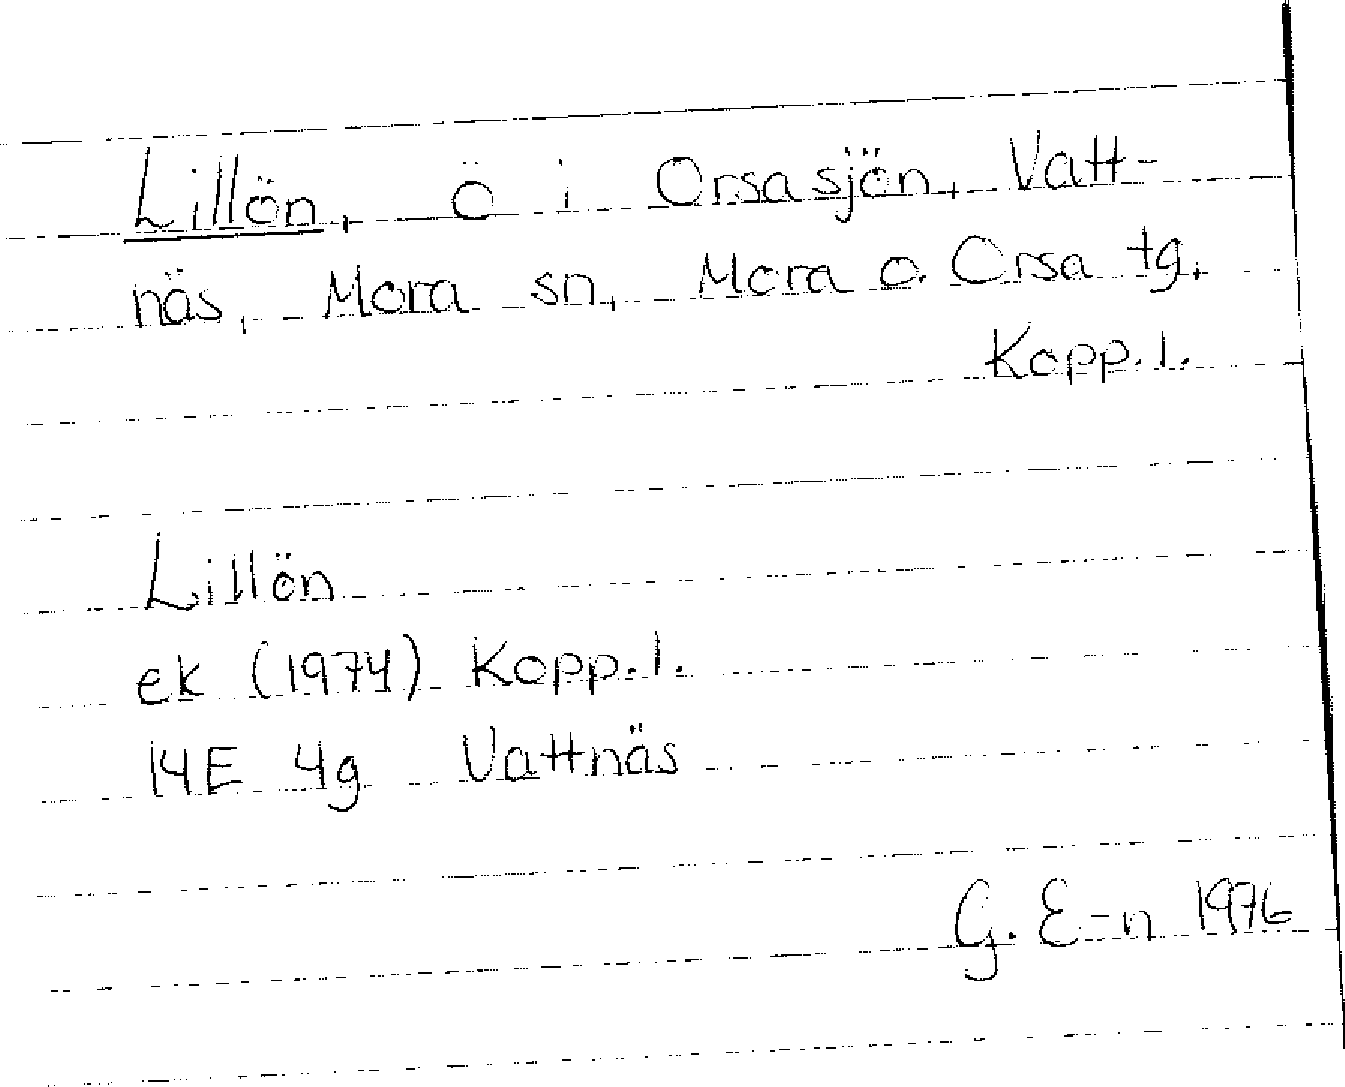 Lillön, ö i Orsasjön, Vatt-
näs, Mora sn, Mora o. Orsa tg,
Kopp. l.
Lillön
ek (1974) Kopp. l.
14E 4g Vattnäs
G. E-n 1976